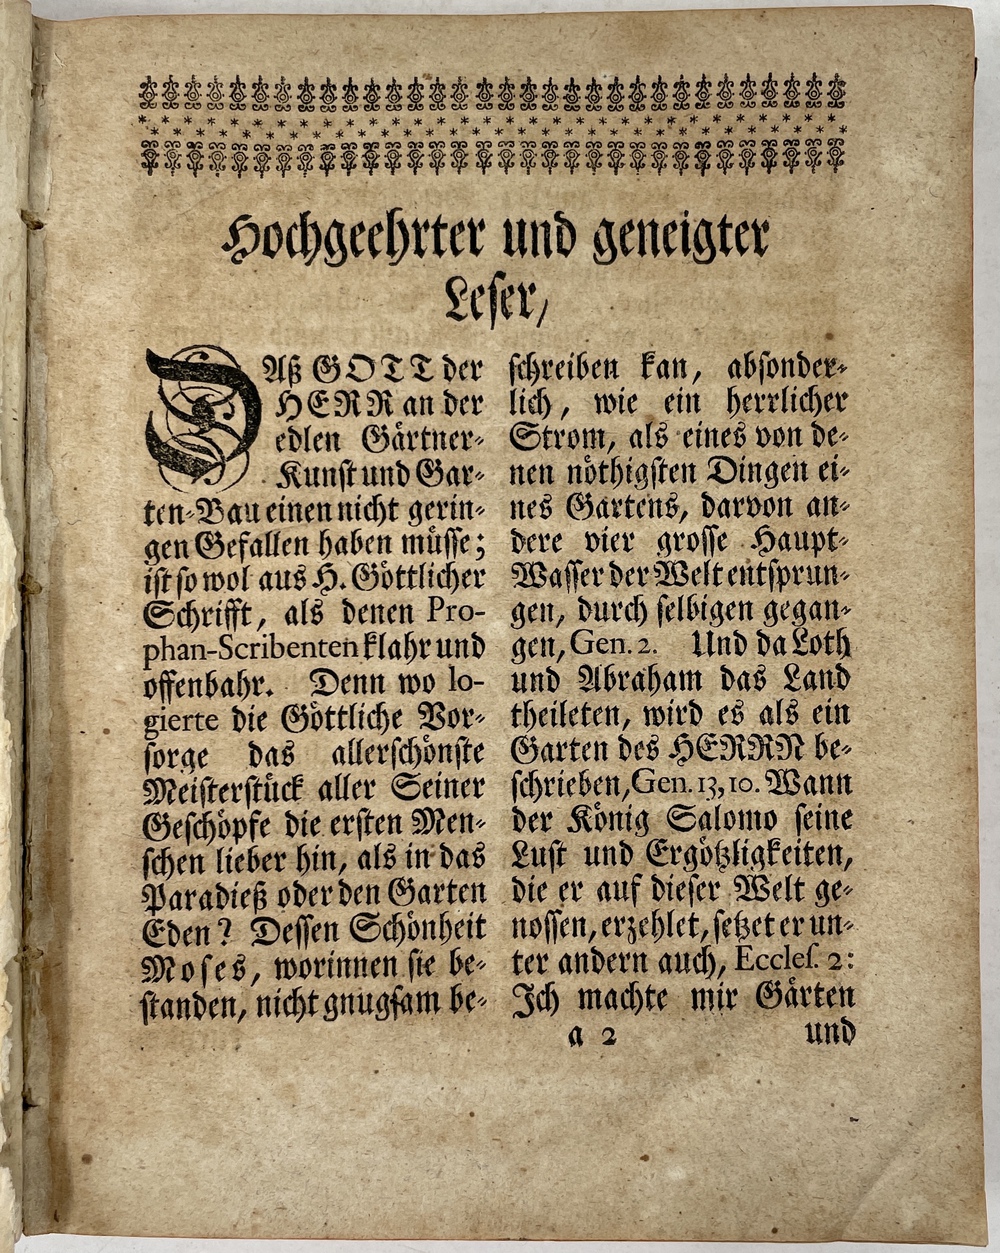 Hochgeehrter und geneigter
Leser/
DAß GOTT der
HERR an der
edlen Gärtner-
Kunst und Gar-
ten-Bau einen nicht gerin-
gen Gefallen haben müsse;
ist so wol aus H. Göttlicher
Schrifft, als denen Pro-
phan-Scribenten klahr und
offenbahr. Denn wo lo-
gierte die Göttliche Vor-
sorge das allerschönste
Meisterstück aller Seiner
Geschöpfe die ersten Men-
schen lieber hin, als in das
Paradieß oder den Garten
Eden? Dessen Schönheit
Moses, worinnen sie be-
standen, nicht gnugsam be-
schreiben kan, absonder-
lich, wie ein herrlicher
Strom, als eines von de-
nen nöthigsten Dingen ei-
nes Gartens, darvon an-
dere vier grosse Haupt-
Wasser der Welt entsprun-
gen, durch selbigen gegan-
gen, Gen. 2. Und da Loth
und Abraham das Land
theileten, wird es als ein
Garten des HERRN be-
schrieben, Gen. 13, 10. Wann
der König Salomo seine
Lust und Ergötzligkeiten,
die er auf dieser Welt ge-
nossen, erzehlet, setzet er un-
ter andern auch, Eccles. 2:
Ich machte mir Gärten
a 2 und